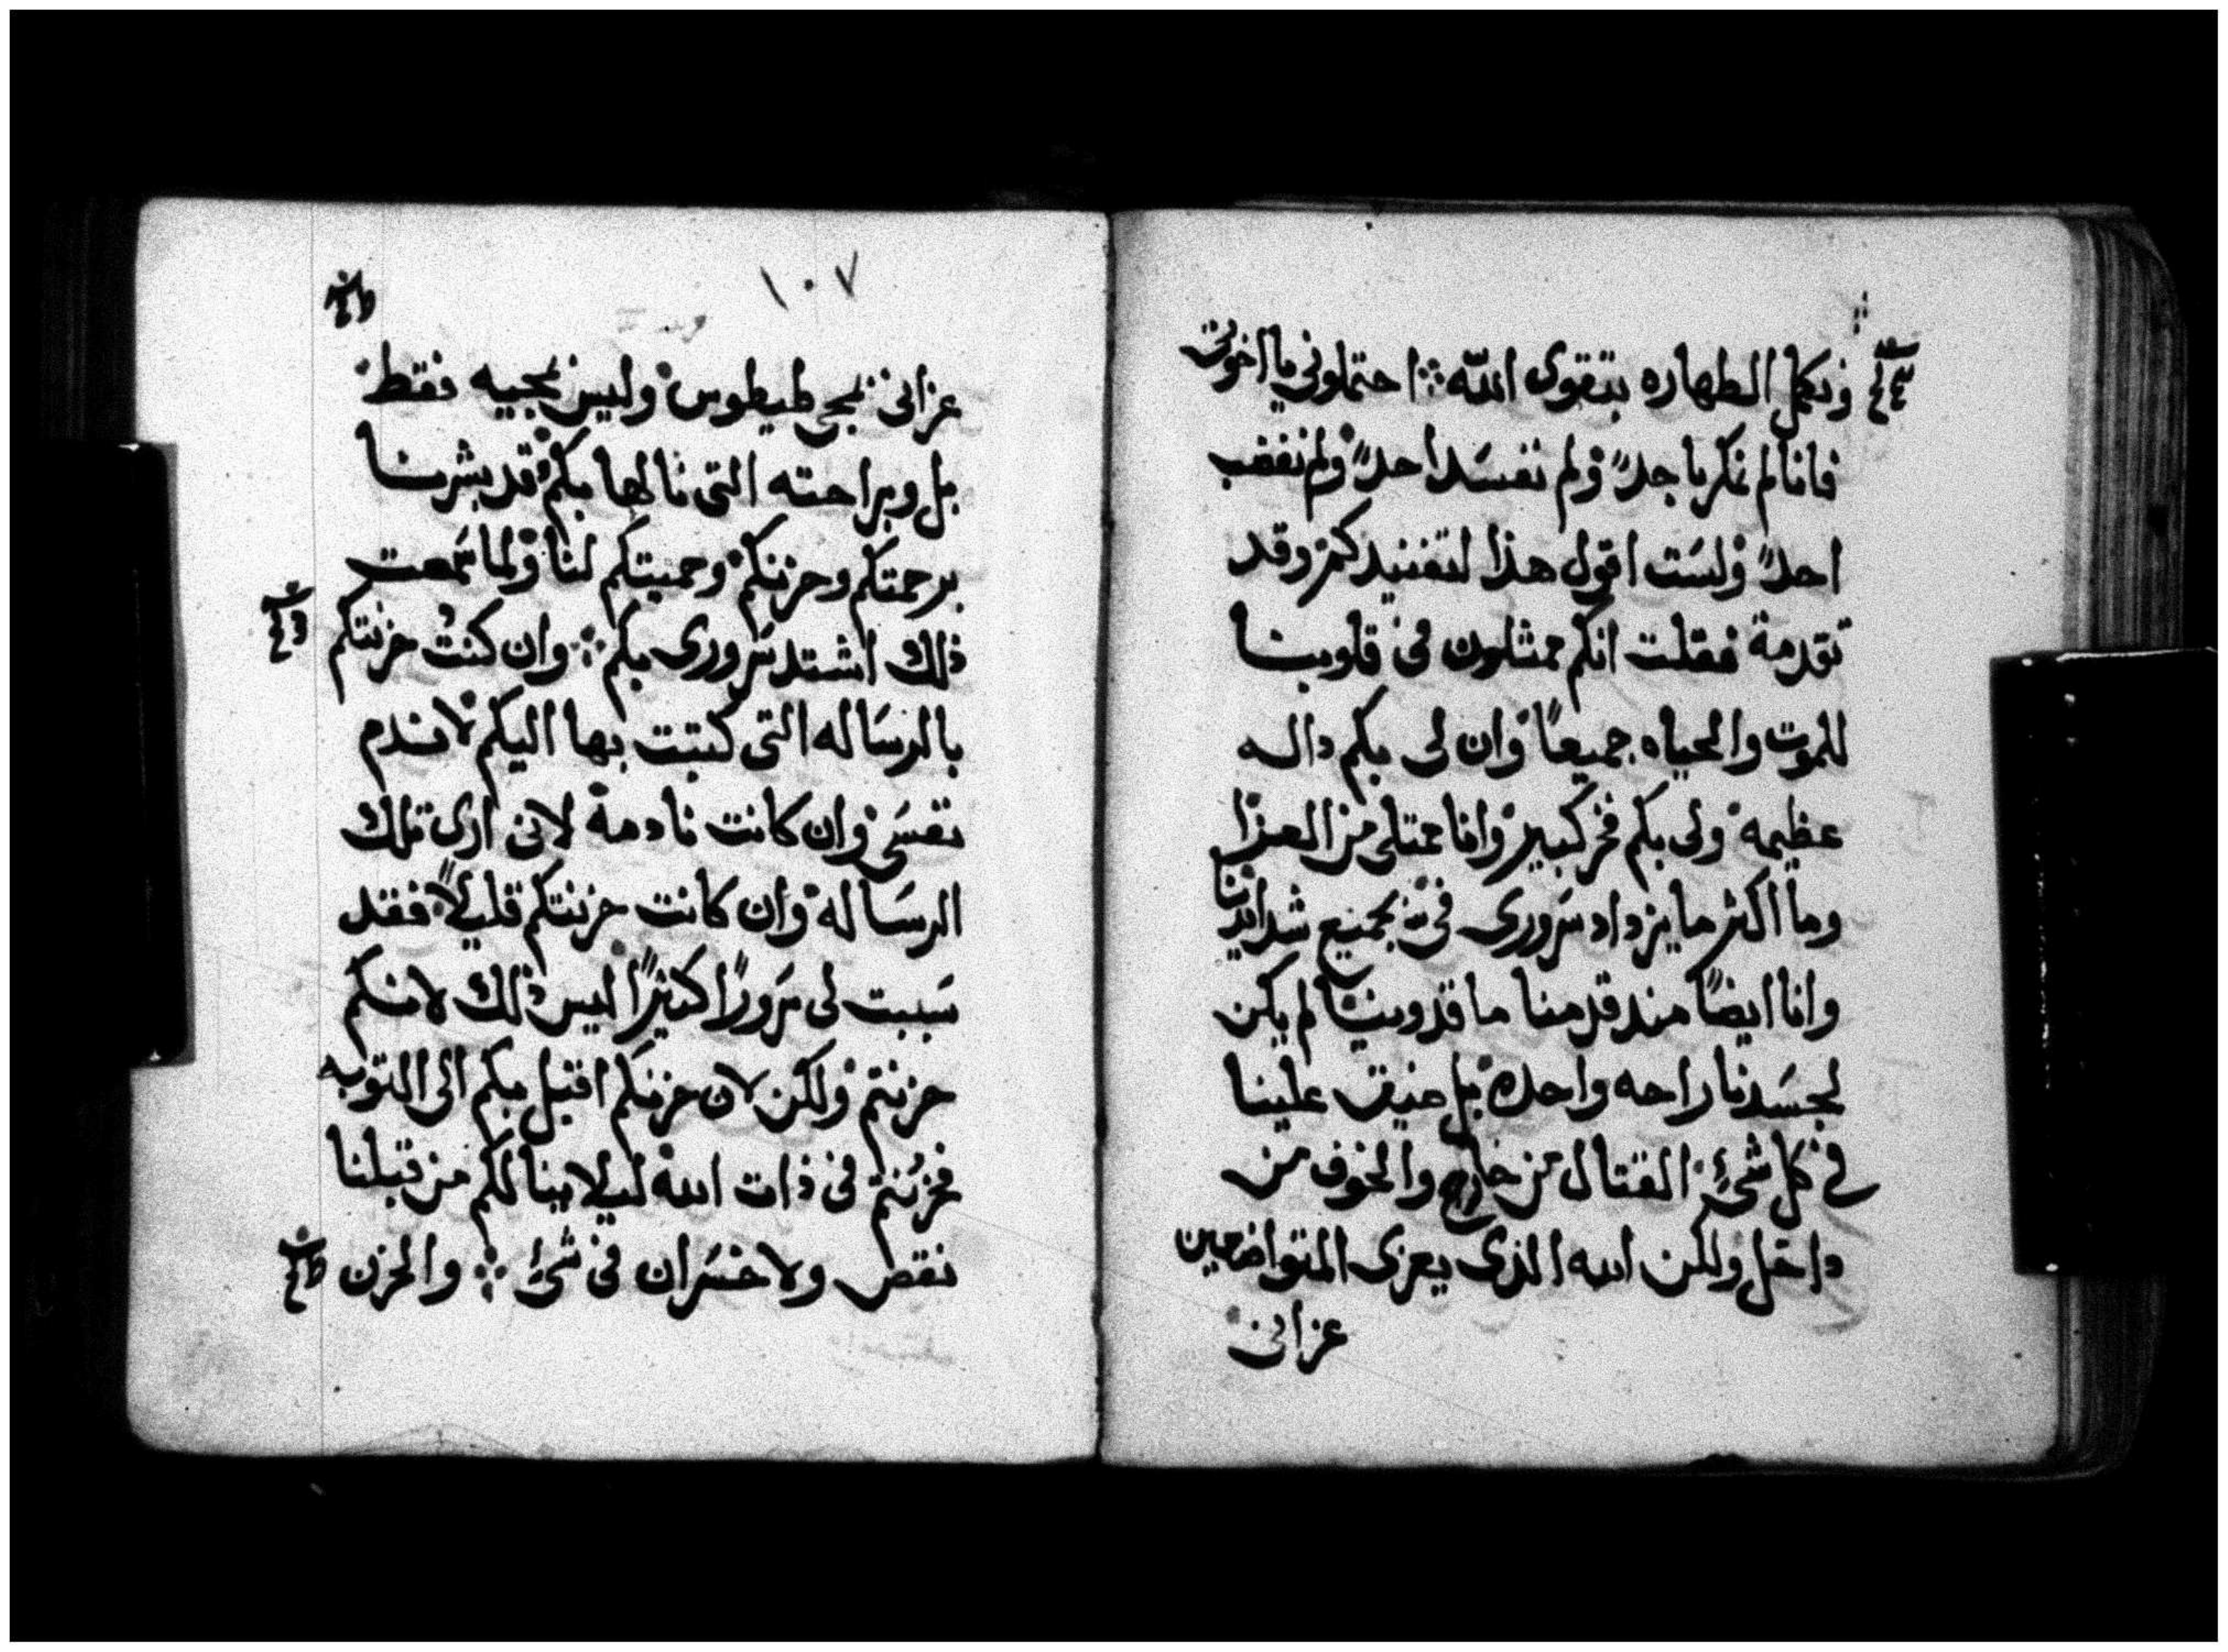 ونكمل الطهاره بتقوى الله ܀ احتملونى يا اخوتى
فانا لم نمكر باحدًا ولم نفسد احدًا ولم نغضب
احدًا ولست اقول هذا لتفنيدكم وقد
تقدمة فقلت انكم ممثلون فى قلوبنا
للموت والحياه جميعًا وان لى بكم داله
عظيمه ولى بكم فخر كبير وانا ممتلى من العزا
وما اكثر ما يزداد سرورى فى جميع شدايدنا
وانا ايضًا منذ قدمنا ماقدونيا لم يكن
لجسدنا راحه واحده بل ضيق علينا
فى كل شئ القتال من خارج والخوف من
داخل ولكن الله الذى يعزى المتواضعين
عزانى
١٠٧
عزانى بمجى طيطوس وليس بمجيه فقط
بل وبراحته التى نالها بكم قد بشرنا
برحمتكم وحزنكم وحميتكم لنا ولما سمعت
ذلك اشتد سرورى بكم ܀ وان كنت حزنتكم
بالرساله التى كتبت بها اليكم لا تندم
نفسى وان كانت نادمة لانى ارى تلك
الرساله وان كانت حزنتكم قليلاً فقد
سببت لى سرورًا كثيرًا ليس ذلك لانكم
حزنتم ولكن لان حزنكم اقبل بكم الى التوبه
فحزنتم فى ذات الله ليلا ينالكم من قبلنا
نقص ولا خسران فى شئ ܀ والحزن